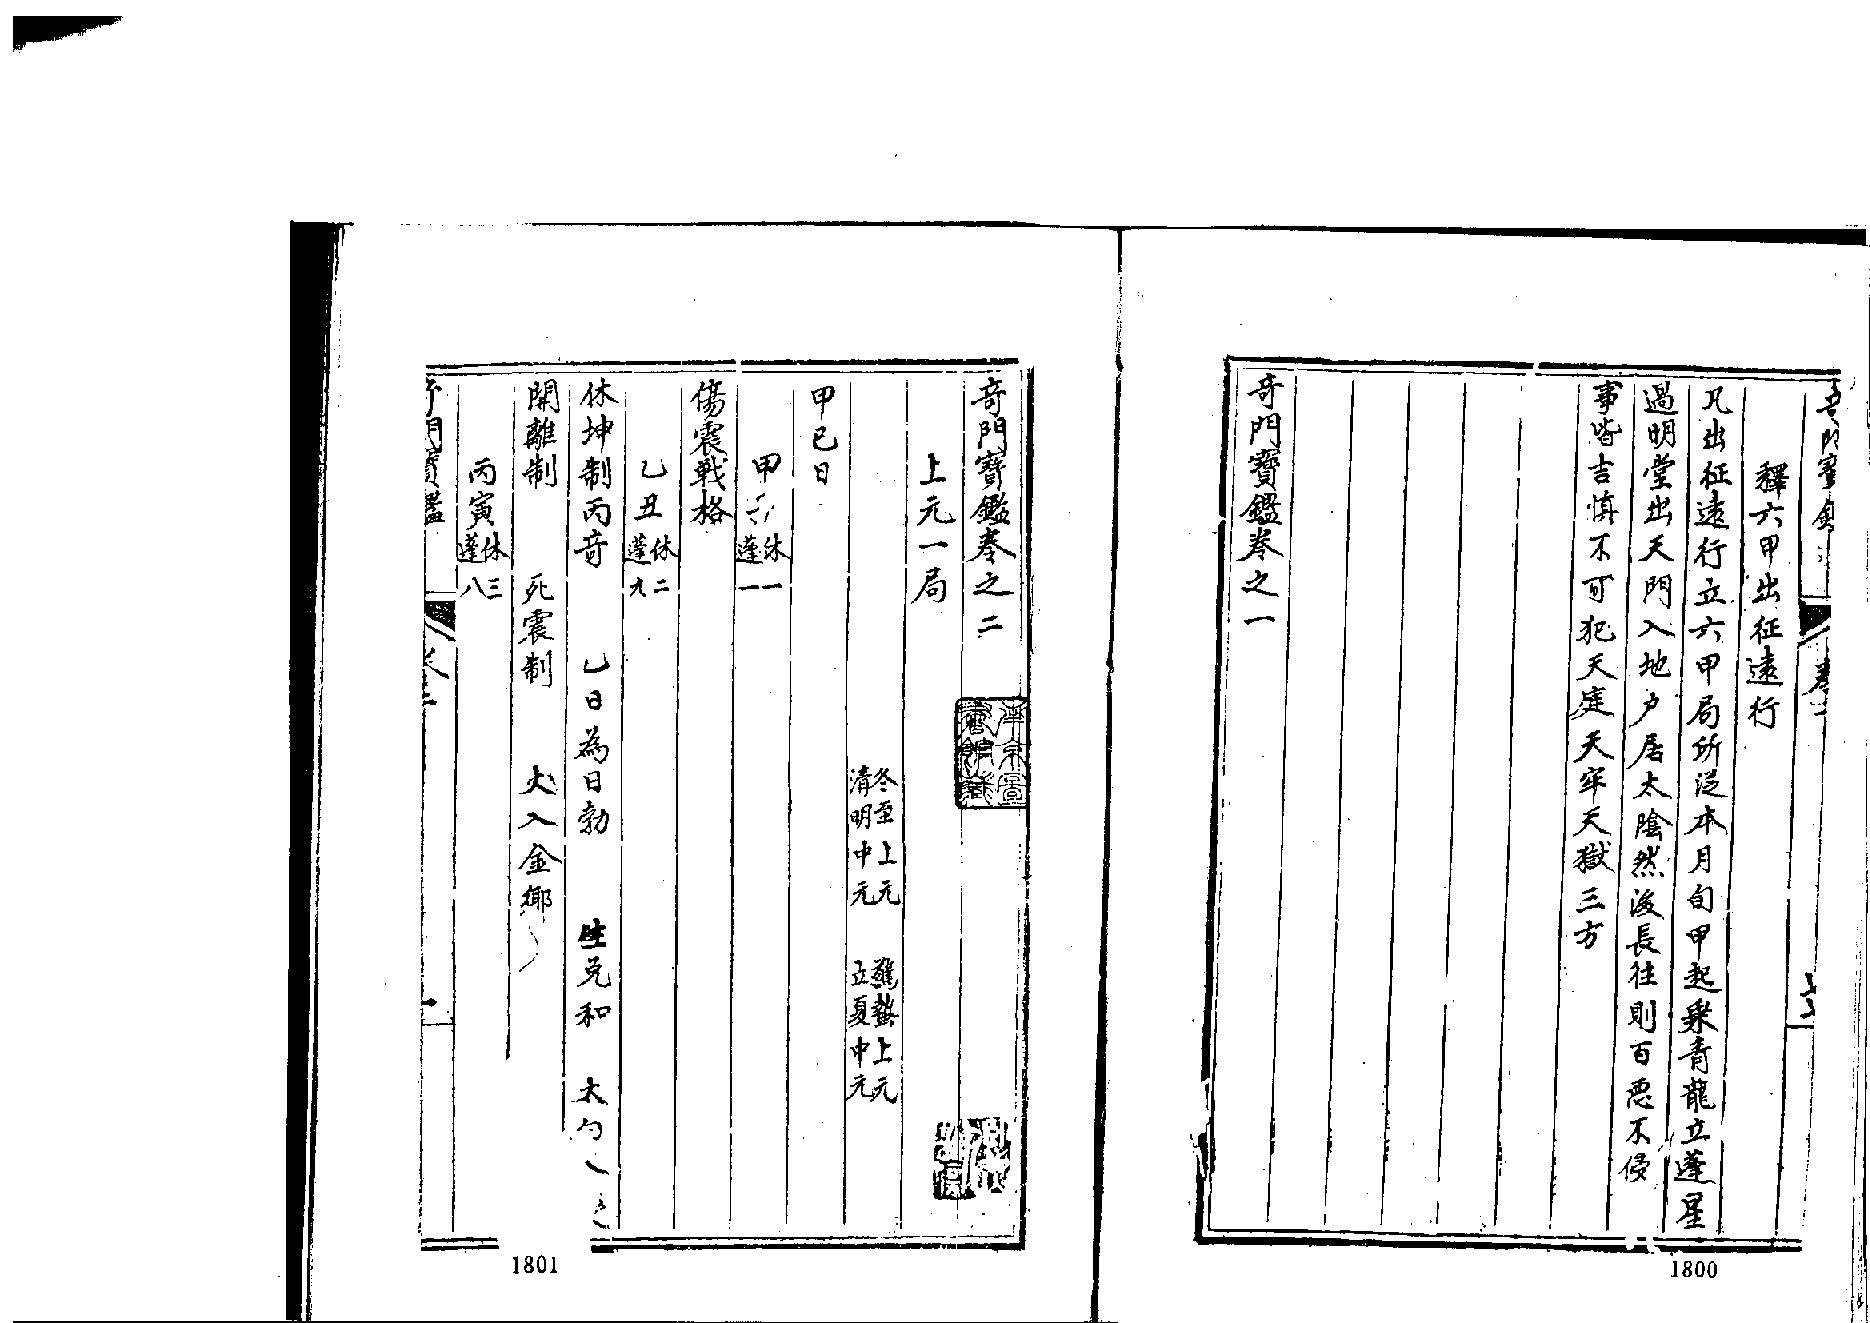 釋六甲出征遠行
凡出征遠行立六甲局所從本月旬甲起乘青龍立蓬星
過明堂出天門入地户居太陰然後長往則百惡不侵
事皆吉慎不可犯天庭天牢天獄三方
奇門寶鑑卷之一
1800
奇門寶鑑卷之二
上元一局
冬至上元 驚蟄上元
清明中元 立夏中元
甲己日
甲 休一
蓬一
傷震戰格
乙丑 休二
蓬九
休坤制丙奇 乙日為日勃 生兌和
開離制 死震制 火入金鄉
丙寅 休三
蓬八
奇門寶鑑
1801